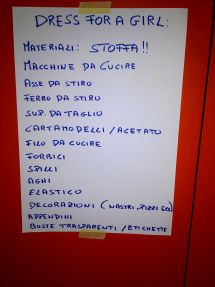 DRESS FOR A GIRL:
MATERIALI: STOFFA!!
MACCHINE DA CUCIRE
ASSE DA STIRO
FERRO DA STIRO
SUP. DA TAGLIO
CARTAMODELLI / ACETATO
FILO DA CUCIRE
FORBICI
SPILLI
AGHI
ELASTICO
DECORAZIONI (NASTRI, PIZZI ECC)
APPENDINI
BUSTE TRASPARENTI / ETICHETTE